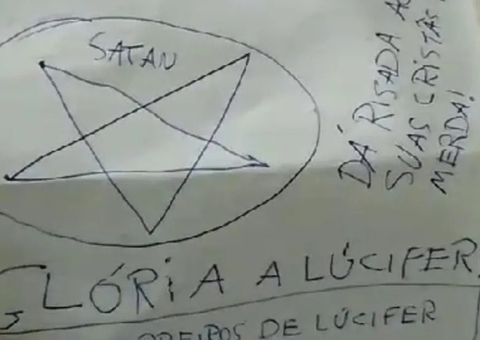 SATAN
DÁ RISADA
SUAS CRISTÃS
MERDA!
GLÓRIA A LÚCIFER
DE LÚCIFER